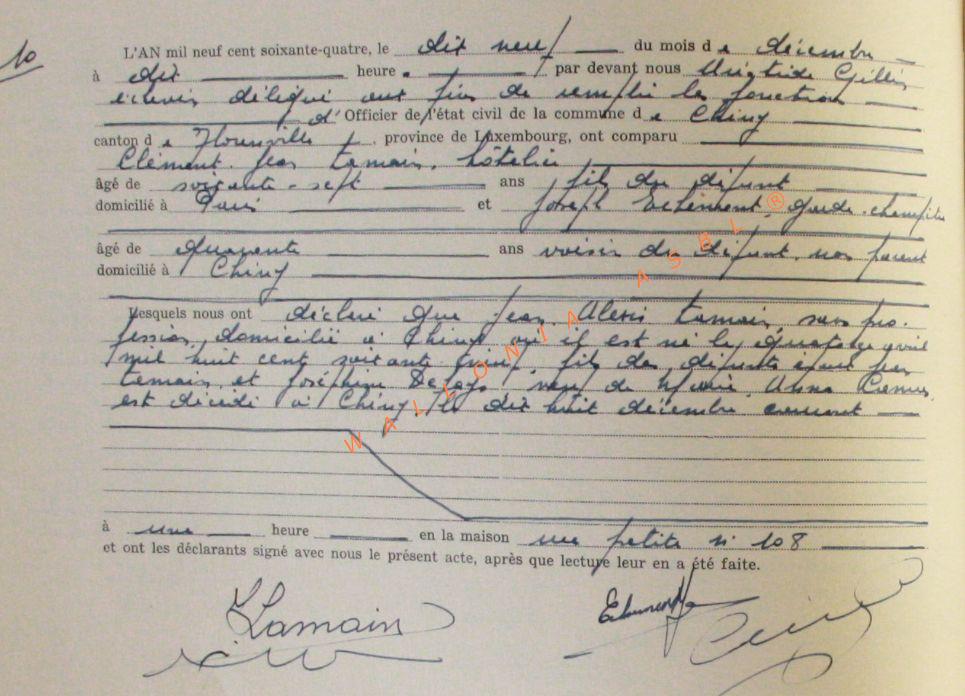 10
L'AN mil neuf cent soixante-quatre, le dix neuf du mois de décembre
à dix heure. par devant nous Gillis
échevin délégué aux fins de remplir les fonctions
d'Officier de l'état civil de la commune de Chiny
canton de Florenville, province de Luxembourg, ont comparu
Clément Jean Lamain, hôtelier
âgé de soixante-sept ans fils du défunt
domicilié à Paris et Joseph garde-champêtre
âgé de quarante ans voisin du défunt, non parent
domicilié à Chiny
Lesquels nous ont déclaré que Jean Alexis Lamain, sans pro-
fession, domicilié à Chiny, où il est né le quatorze avril
mil huit cent soixante fils des défunts
Lamain et Joséphine veuf de Marie
est décédé à Chiny, le dix huit décembre courant
à une heure en la maison rue petite n° 108
et ont les déclarants signé avec nous le présent acte, après que lecture leur en a été faite.
Lamain
WALLONIA ASBL ®